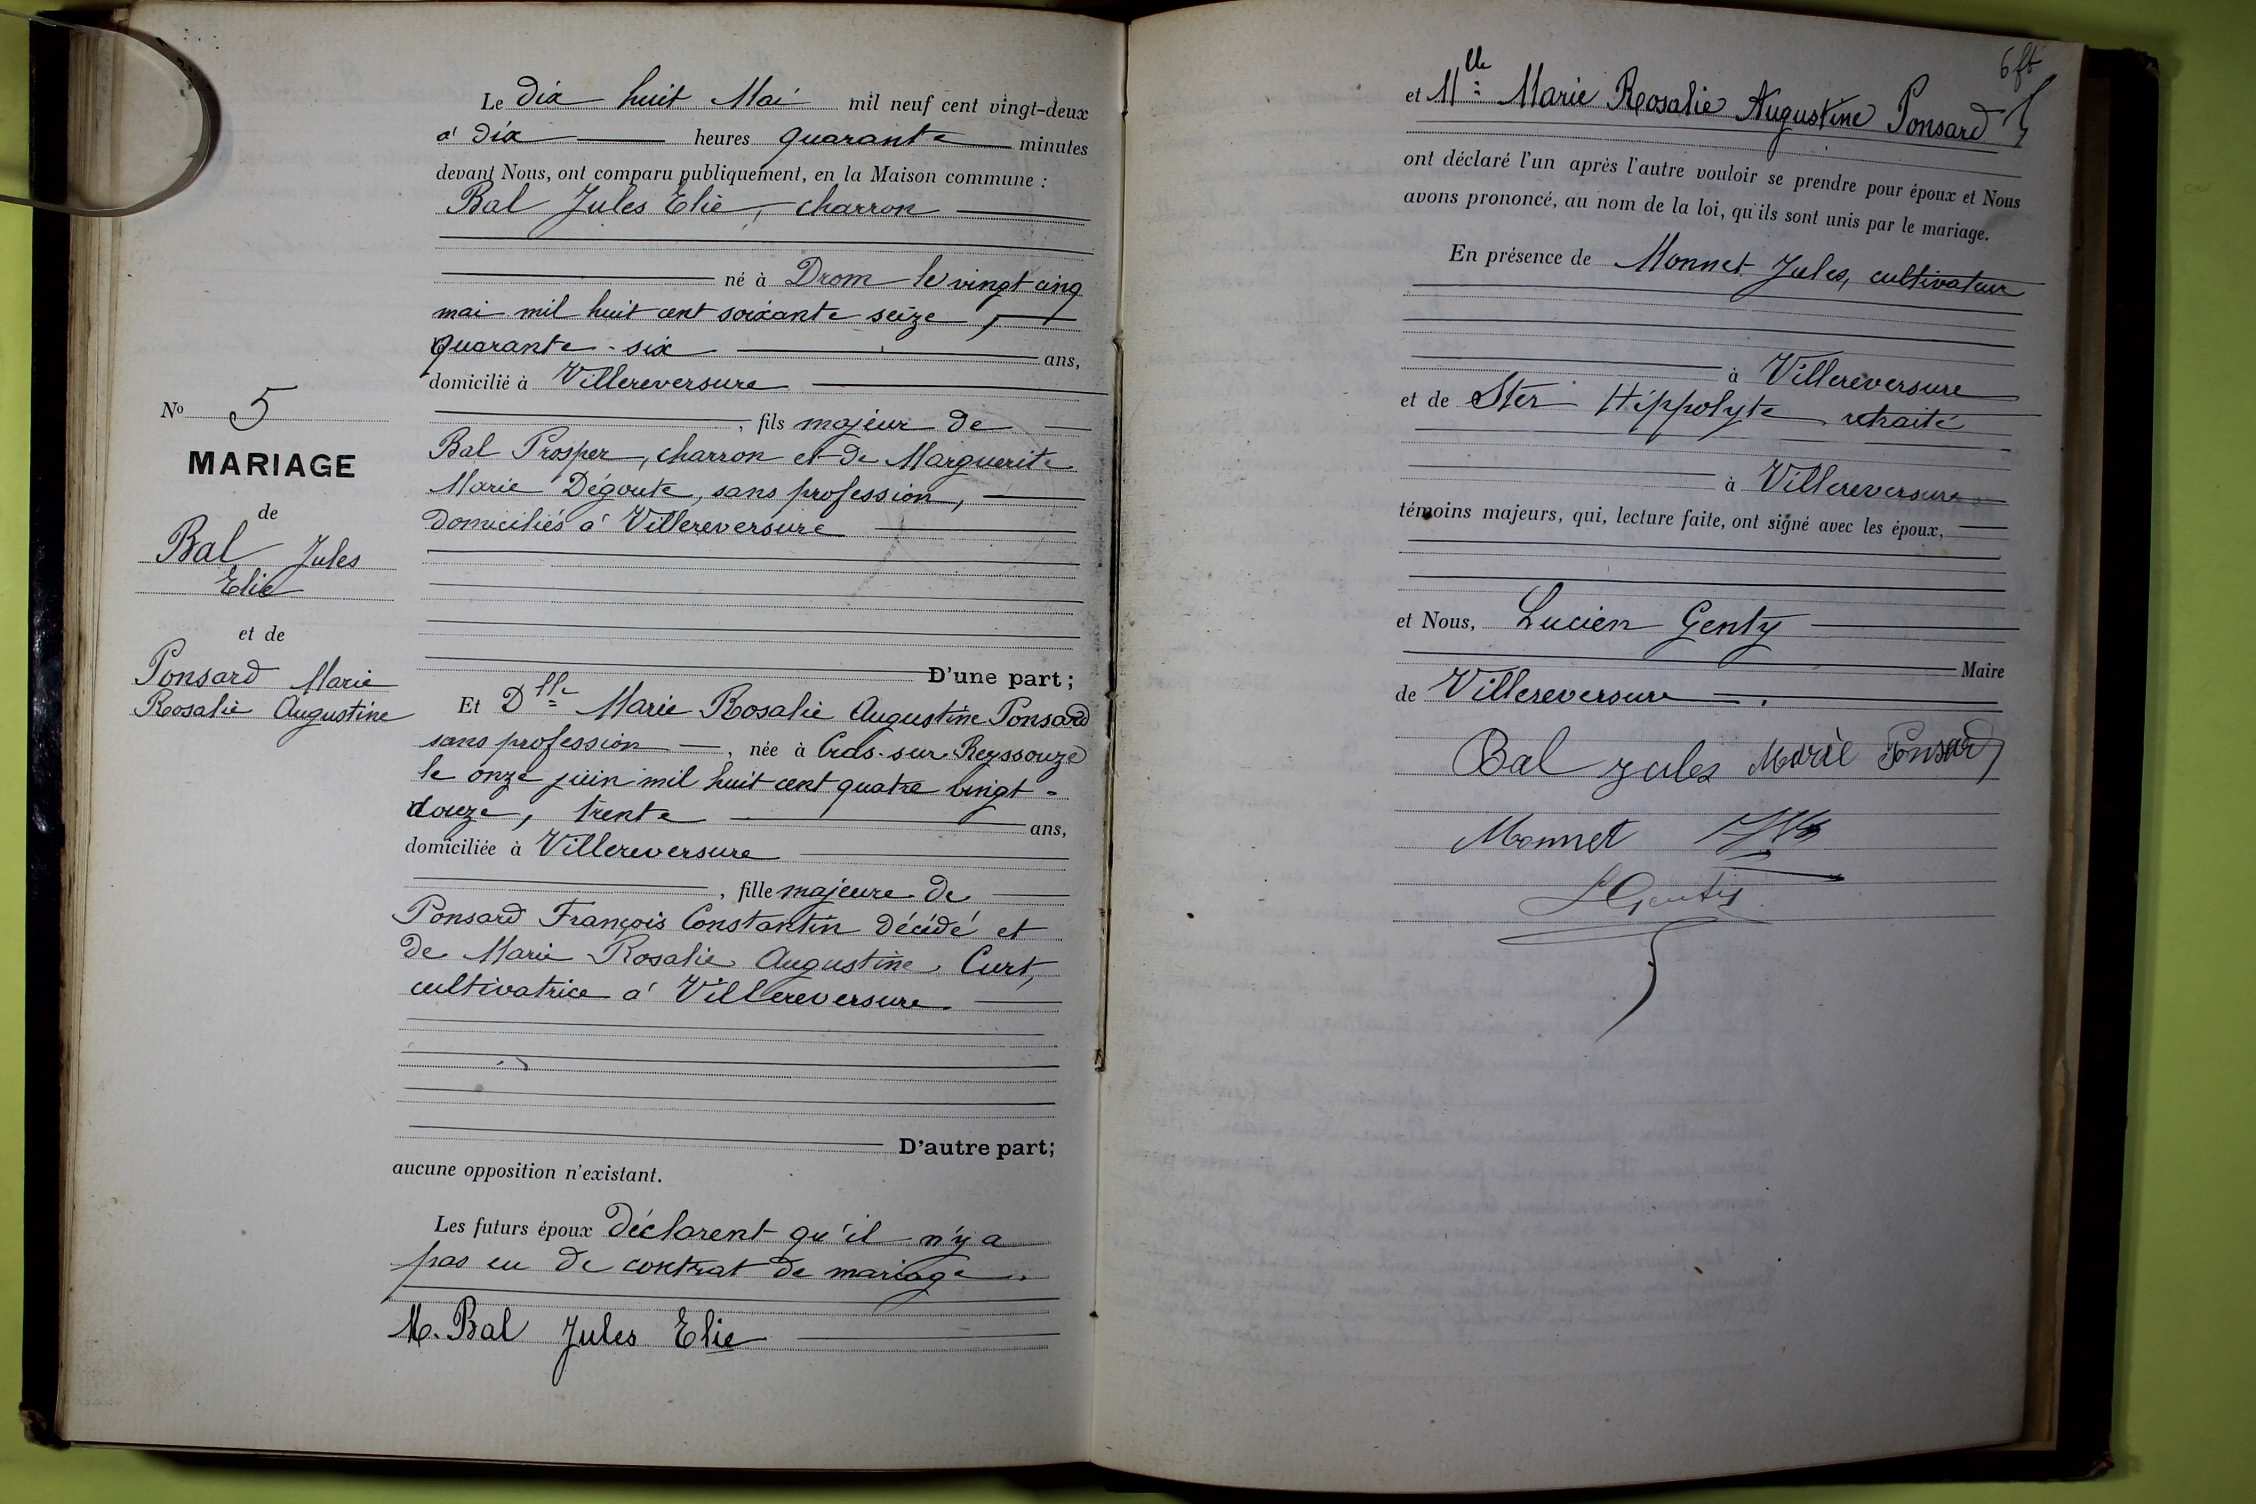 Le dix huit Mai mil neuf cent vingt-deux
à dix heures quarante minutes
devant Nous, ont comparu publiquement, en la Maison commune :
Bal Jules Elie, charron
né à Drom le vingt cinq
mai mil huit cent soixante seize,
quarante-six ans,
domicilié à Villereversure
, fils majeur de
Bal Prosper, charron et de Marguerite
Marie Dégoute, sans profession,
domiciliés à Villereversure
D'une part ;
Nº 5
MARIAGE
de
Bal Jules
Elie
et de
Ponsard Marie
Rosalie Augustine
Et Dlle Marie Rosalie Augustine Ponsard
sans profession, née à Cras-sur-Reyssouze
le onze juin mil huit cent quatre vingt-
douze, trente ans,
domiciliée à Villereversure
, fille majeure de
Ponsard François Constantin décédé et
de Marie Rosalie Augustine Curt,
cultivatrice à Villereversure
D'autre part ;
aucune opposition n'existant.
Les futurs époux déclarent qu'il n'y a
pas eu de contrat de mariage.
M. Bal Jules Elie
et Mlle Marie Rosalie Augustine Ponsard
ont déclaré l'un après l'autre vouloir se prendre pour époux et Nous
avons prononcé, au nom de la loi, qu'ils sont unis par le mariage.
En présence de Monnet Jules, cultivateur
à Villereversure
et de Ster Hippolyte retraité
à Villereversure
témoins majeurs, qui, lecture faite, ont signé avec les époux,
et Nous, Lucien Genty
Maire
de Villereversure.
Bal Jules Marie Ponsard
Monnet
LGenty